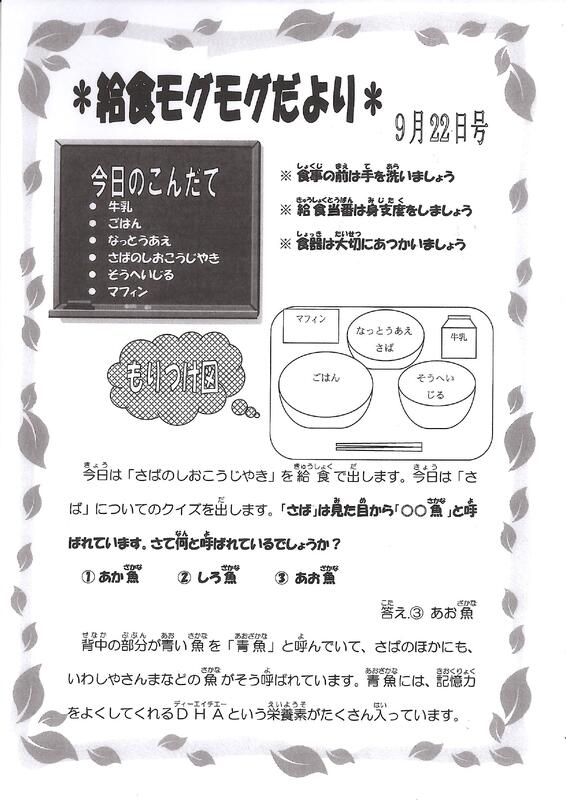 *給食モグモグだより*
9月22日号
今日のこんだて
● 牛乳
● ごはん
● なっとうあえ
● さばのしおこうじやき
● そうへいじる
● マフィン
※ 食事の前は手を洗いましょう
※ 給食当番は身支度をしましょう
※ 食器は大切にあつかいましょう
もりつけ図
マフィン
なっとうあえ
さば
牛乳
ごはん
そうへい
じる
今日は「さばのしおこうじやき」を給食で出します。今日は「さ
ば」についてのクイズを出します。「さば」は見た目から「○○魚」と呼
ばれています。さて何と呼ばれているでしょうか？
①あか魚 ②しろ魚 ③あお魚
答え.③ あお魚
背中の部分が青い魚を「青魚」と呼んでいて、さばのほかにも、
いわしやさんまなどの魚がそう呼ばれています。青魚には、記憶力
をよくしてくれるＤＨＡという栄養素がたくさん入っています。